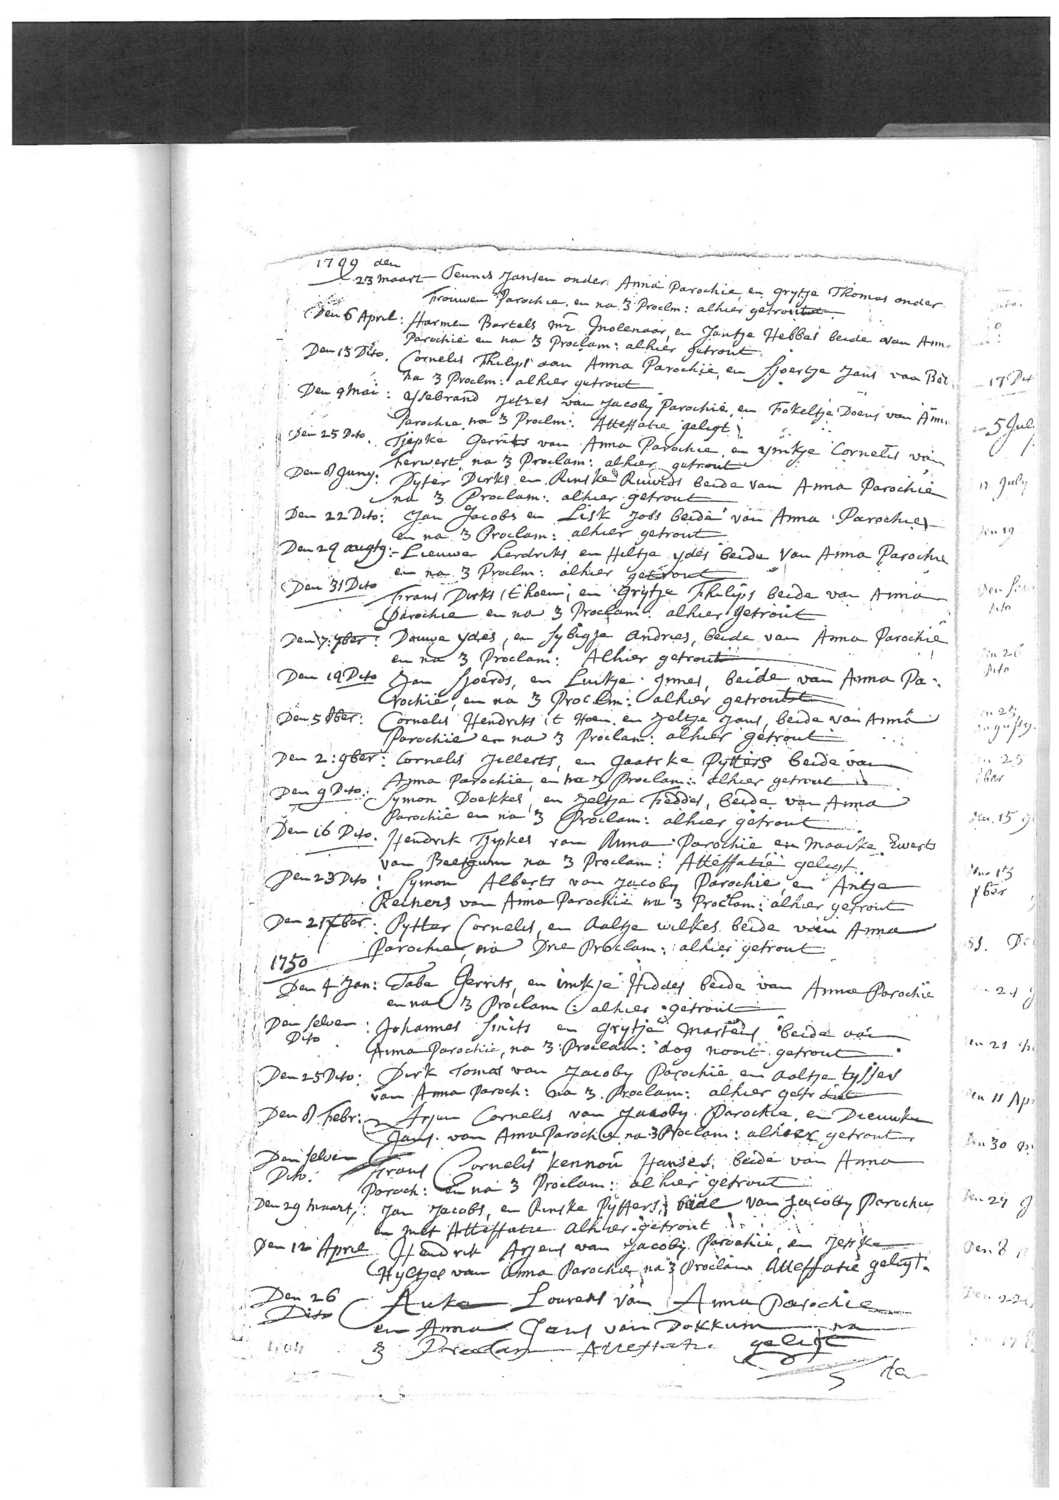 1749 den
23 maart Teunis Jansen onder Anna Parochie, en Grytje Thomas onder
Vrouwen Parochie, en na 3 Proclm: alhier getrout
Den 6 April: Harmen Bartels Mr Molenaar, en Jantje Hebbes beide van Anna
Parochie en na 3 Proclam: alhier getrout
Den 13 Dito. Cornelis Philips van Anna Parochie, en Sjoertje Jans van
na 3 Proclm: alhier getrout
Den 9 Mai: IJsebrand Jetzes van Jacoby Parochie, en Fokeltje Doens van Ann:
Parochie, na 3 Proclm: Attestatie gelegt
Den 25 Dito. Tjepke Gerrits van Anna Parochie, en Cornelis van
Ferwert, na 3 Proclam: alhier getrout
Den 8 Juny: Dirks en Rinske beide van Anna Parochie
na 3 Proclam: alhier getrout
Den 22 Dito: Jan Jacobs en Lisk Jobs beide van Anna Parochie
en na 3 Proclam: alhier getrout
Den 29 augtg: Lieuwe Herdriks en Hiltje ydes beide van Anna Parochie
en na 3 Proclm: alhier getrout
Den 31 Dito Frans Dirks 't hoen, en Grytje Philips beide van Anna
Parochie en na 3 Proclam: alhier getrout
Den 7: 7ber: Douwe ydes, en Sybigje Andries, beide van Anna Parochie
en na 3 Proclam: Alhier getrout
Den 19 Dito Jan Sjoerds, en Luitje Innes, beide van Anna Pa-
rochie, en na 3 Proclm: alhier getrout
Den 5 8ber: Cornelis Hendriks 't Hoen en Jeltje Jans, beide van Anna
Parochie en na 3 Proclam: alhier getrout
Den 2: 9ber: Cornelis Jillerts, en Gaatske Pytters beide van
Anna Parochie, en na 3 Proclam: alhier getrout
Den 9 Dito: Symon Doekkes, en Jeltje Feddes, beide van Anna
Parochie en na 3 Proclam: alhier getrout
Den 16 Dito. Hendrik Tjipkes van Anna Parochie en Maaike Ewerts
van Beetgum na 3 Proclam: Attestatie gelegt
Den 23 Dito: Symon Alberts van Jacoby Parochie, en Antje
Reiners van Anna Parochie na 3 Proclam: alhier getrout
Den 21 Pytter Cornelis, en Aaltje Wilkes beide van Anna
Parochie, na Drie Proclam: alhier getrout
1750
Den 4 Jan: Tabe Gerrits, en imkje Hiddes beide van Anna Parochie
en na 3 Proclam: alhier getrout
Den selven: Johannes Smits en Grytje Martens beide van
Dito Anna Parochie, na 3 Proclam: dog nooit getrout
Den 25 Dito: Dirk Tomas van Jacoby Parochie en Aaltje tysses
van Anna Paroch: na 3 Proclam: alhier getrout
Den 8 Febr: Arjen Cornelis van Jacoby Parochie, en Dieuwke
Jans van Anna Parochie na 3 Proclam: alhier getrout
Den selven Frans Cornelis en Kennou Hanses, beide van Anna
Dito: Paroch: en na 3 Proclam: alhier getrout
Den 29 maart,: Jan Jacobs, en Rinske Pytters, beide van Jacoby Parochie,
en met Attestatie alhier getrout
Den 12 April Hendrik Arjens van Jacoby Parochie, en
Hyltjes van Anna Parochie, na 3 Proclam Attestatie gelegt.
Den 26 Auke Lourens van Anna Parochie
Dito en Anna Jans van Dokkum na
3 Proclam Attestatie gelegt
17 Dit
5 July
12 July
Den 19
dito
15
Den 8